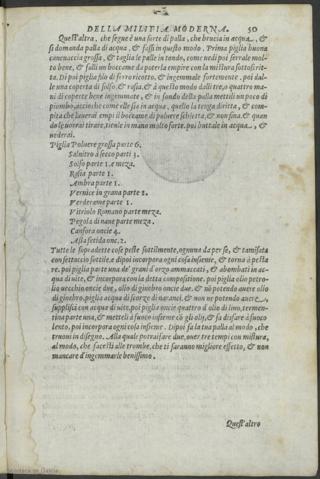 DELLA MILITIA MODERNA. 50
Quest'altra, che segue è una sorte di palla, che brucia in acqua, &
si domanda palla di acqua, & fassi in questo modo. Prima piglia buona
canevaccia grossa, & taglia le palle in tondo, come vedi poi ferrale molto
bene, & falli un boccame da poterla empire con la mistura sottoscritta.
Di poi piglia filo di ferro ricotto, & ingemmale fortemente. poi dalle
una coperta di solfo, & rasia, & à questo modo dalli tre, o quattro mani
di coperte bene ingemmate, & in fondo della palla mettili un poco di
piombo, acciò che come elle sia in acqua, quello la tenga diritta, &
empi il boccame di polvere schietta, & non fina. & quando
le vorrai tirare, tienle in mano molto forte. poi buttale in acqua, &
vederai.
Piglia Polvere grossa parte 6.
Salnitro à secco parti 3.
Solfo parte 1. e meza.
Rasia parte 1.
Ambra parte 1.
Vernice in grana parte 2.
Verderame parte 1.
Vitriolo Romano parte meza.
Pegola di nave parte meza.
Canfora oncie 4.
Assa fetida onc. 2.
Tutte le sopradette cose peste sottilmente, ognuna da per se, & tamisata
con settaccio sottile. e dipoi incorpora ogni cosa insieme, & torna à pestare.
poi piglia parte una de' grani d'orzo ammaccati, & abombati in acqua
di vite, & incorpora con la detta compositione. poi piglia olio petrolio
vecchio oncie due, olio di ginebro oncie due, & nō potendo avere olio
di ginebro, piglia acqua di scorze di naranci. & non ne potendo avere,
supplisci con acqua di vite. poi piglia oncie quattro d'olio di lino, termentina
parte una, & metteli à fuoco insieme cō gli olij, & fa disfare à fuoco
lento, poi incorpora ogni cosa insieme. Dipoi fa la tua palla al modo, che
truoni in disegno. Alla quale potrai fare due, over tre tempi con mistura,
al modo, che facesti alle trombe, che ti faranno migliore effetto, & non
mancare d'ingemmarle benissimo.
Quest'altro